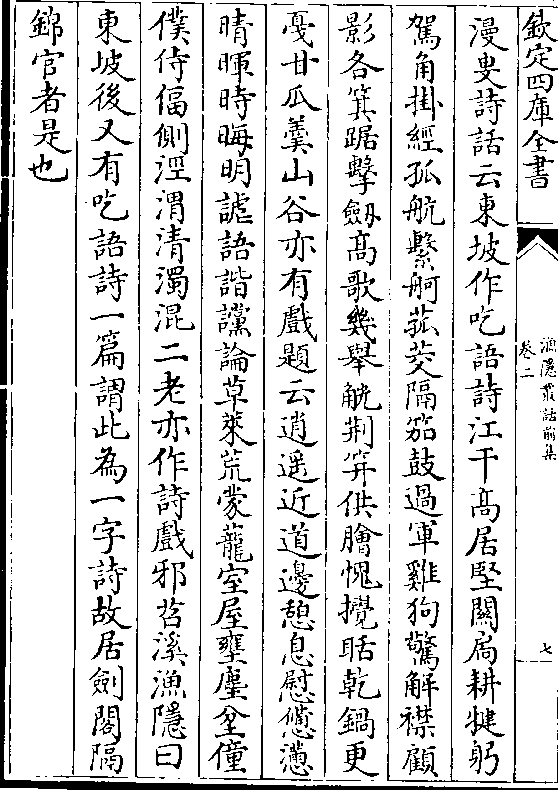 欽定四庫全書
漁隱叢話前集
卷二
七
漫叟詩話云東坡作吃語詩江干高居堅關扃耕犍躬
駕角掛經孤航繫舸菰茭隔笳鼓過軍雞狗驚解襟顧
影各箕踞擊劔高歌幾舉觥荆笄供膾愧攪聒乾鍋更
戞甘瓜羹山谷亦有戲題云逍遥近道邊憩息慰憊懣
晴暉時晦明謔語諧讜論草萊荒蒙蘢室屋壅塵坌僮
僕侍偪側涇渭清濁混二老亦作詩戲邪苕溪漁隱曰
東坡後又有吃語詩一篇謂此為一字詩故居劍閣隔
錦官者是也